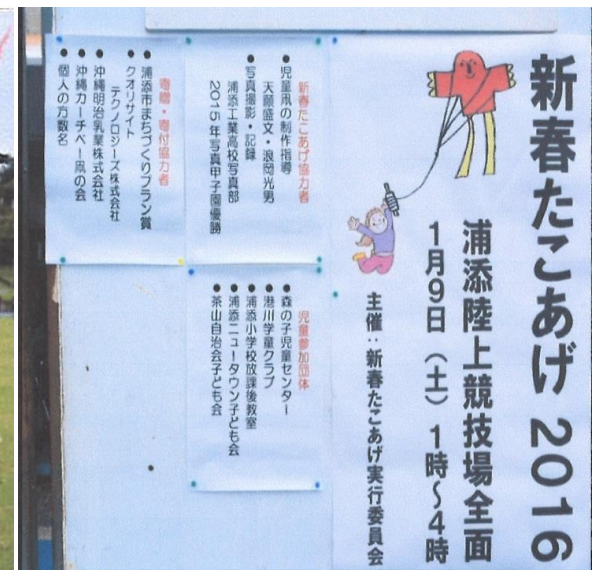 新春たこあげ 2016
浦添陸上競技場全面
1月9日（土）1時〜4時
主催：新春たこあげ実行委員会
新春たこあげ協力者
●児童凧の制作指導
天願盛文・浪岡光男
●写真撮影・記録
浦添工業高校写真部
2015年写真甲子園優勝
児童参加団体
●森の子児童センター
●港川学童クラブ
●浦添小学校放課後教室
●浦添ニュータウン子ども会
●茶山自治会子ども会
寄贈・寄付協力者
●浦添市まちづくりプラン賞
●クオリサイト
テクノロジーズ株式会社
●沖縄明治乳業株式会社
●沖縄カーチベー凧の会
●個人の方数名